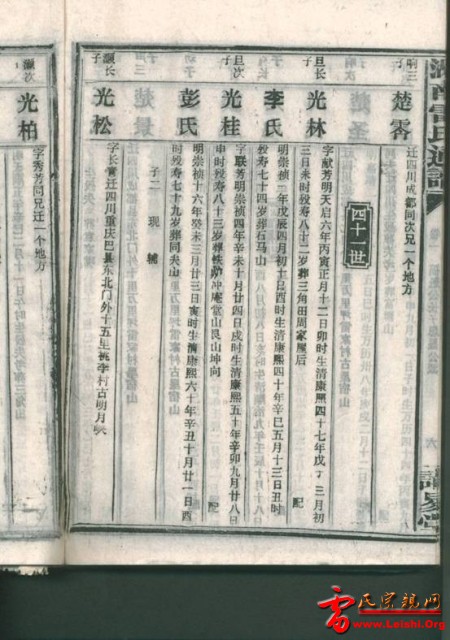 响三子
楚霱
迁四川成都同次兄一个地方
四十一世
旦长子
光林
字献芳明天启六年丙寅正月十二日卯时生清康熙四十七年戊 三月初
三日未时殁寿八十二岁葬三角田周家屋后 配
李氏
明崇祯 年戊辰四月初十日酉时生清康熙四十年辛巳五月十三日丑时
殁寿七十四岁葬石马山
旦次子
光桂
字联芳明崇祯四年辛未十月廿四日戌时生清康熙五十年辛卯九月廿八日
申时殁寿八十三岁葬铁炉冲庵堂山艮山坤向 配
彭氏
明崇祯十六年癸未三月廿三日寅时生清康熙六十年辛丑十月廿一日酉
时殁寿七十九岁葬同夫山
子二 现 辅
灏长子
光松
字长青迁四川重庆巴县东北门外十五里桃李村古明月峡
灏次子
光柏
字秀芳同兄迁一个地方
雷氏宗亲网
http://www.Leishi.Org